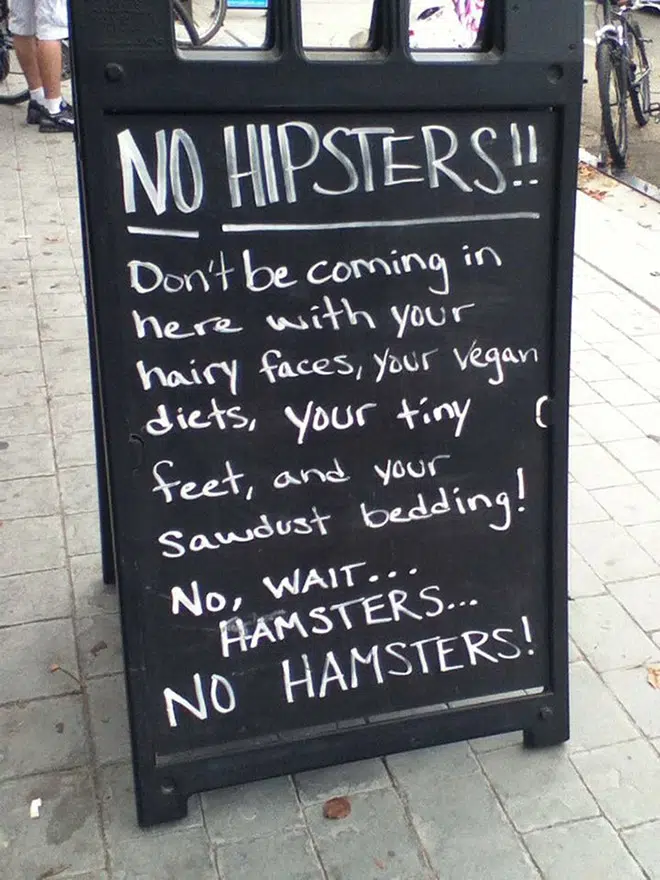 NO HIPSTERS!!
Don't be coming in
here with your
hairy faces, your vegan
diets, your tiny
feet, and your
sawdust bedding!
No, WAIT...
HAMSTERS...
NO HAMSTERS!